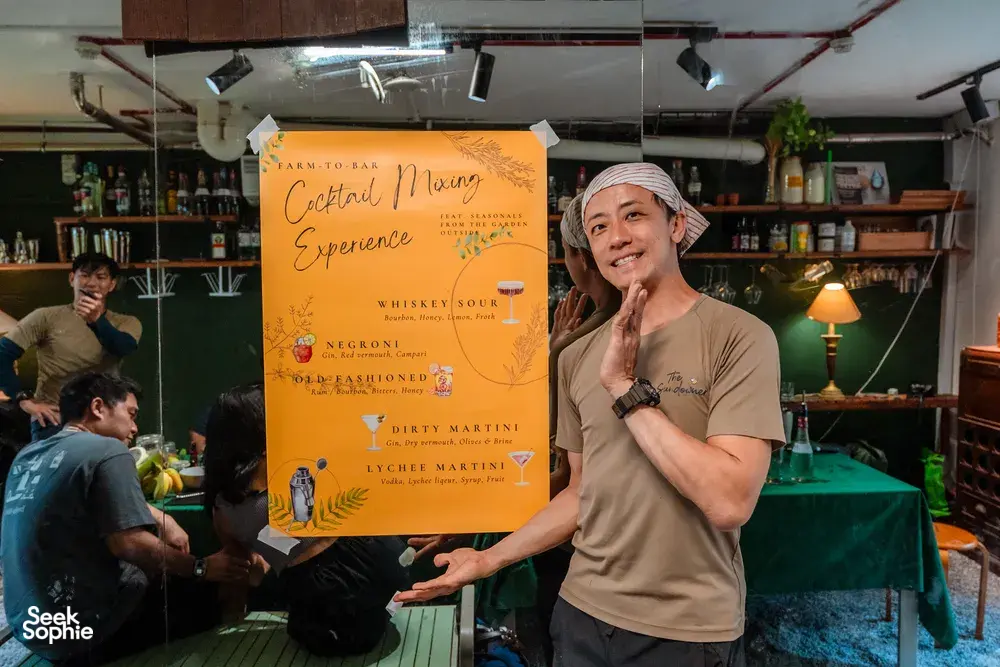 FARM-TO-BAR
Cocktail Mixing
Experience
FEAT SEASONALS
FROM THE GARDEN
OUTSIDE
WHISKEY SOUR
Bourbon, Honey, Lemon, Froth
NEGRONI
Gin, Red vermouth, Campari
OLD FASHIONED
Rum / Bourbon, Bitters, Honey
DIRTY MARTINI
Gin, Dry vermouth, Olives & Brine
LYCHEE MARTINI
Vodka, Lychee liqeur, Syrup, Fruit
The
Sundowner
Seek
Sophie